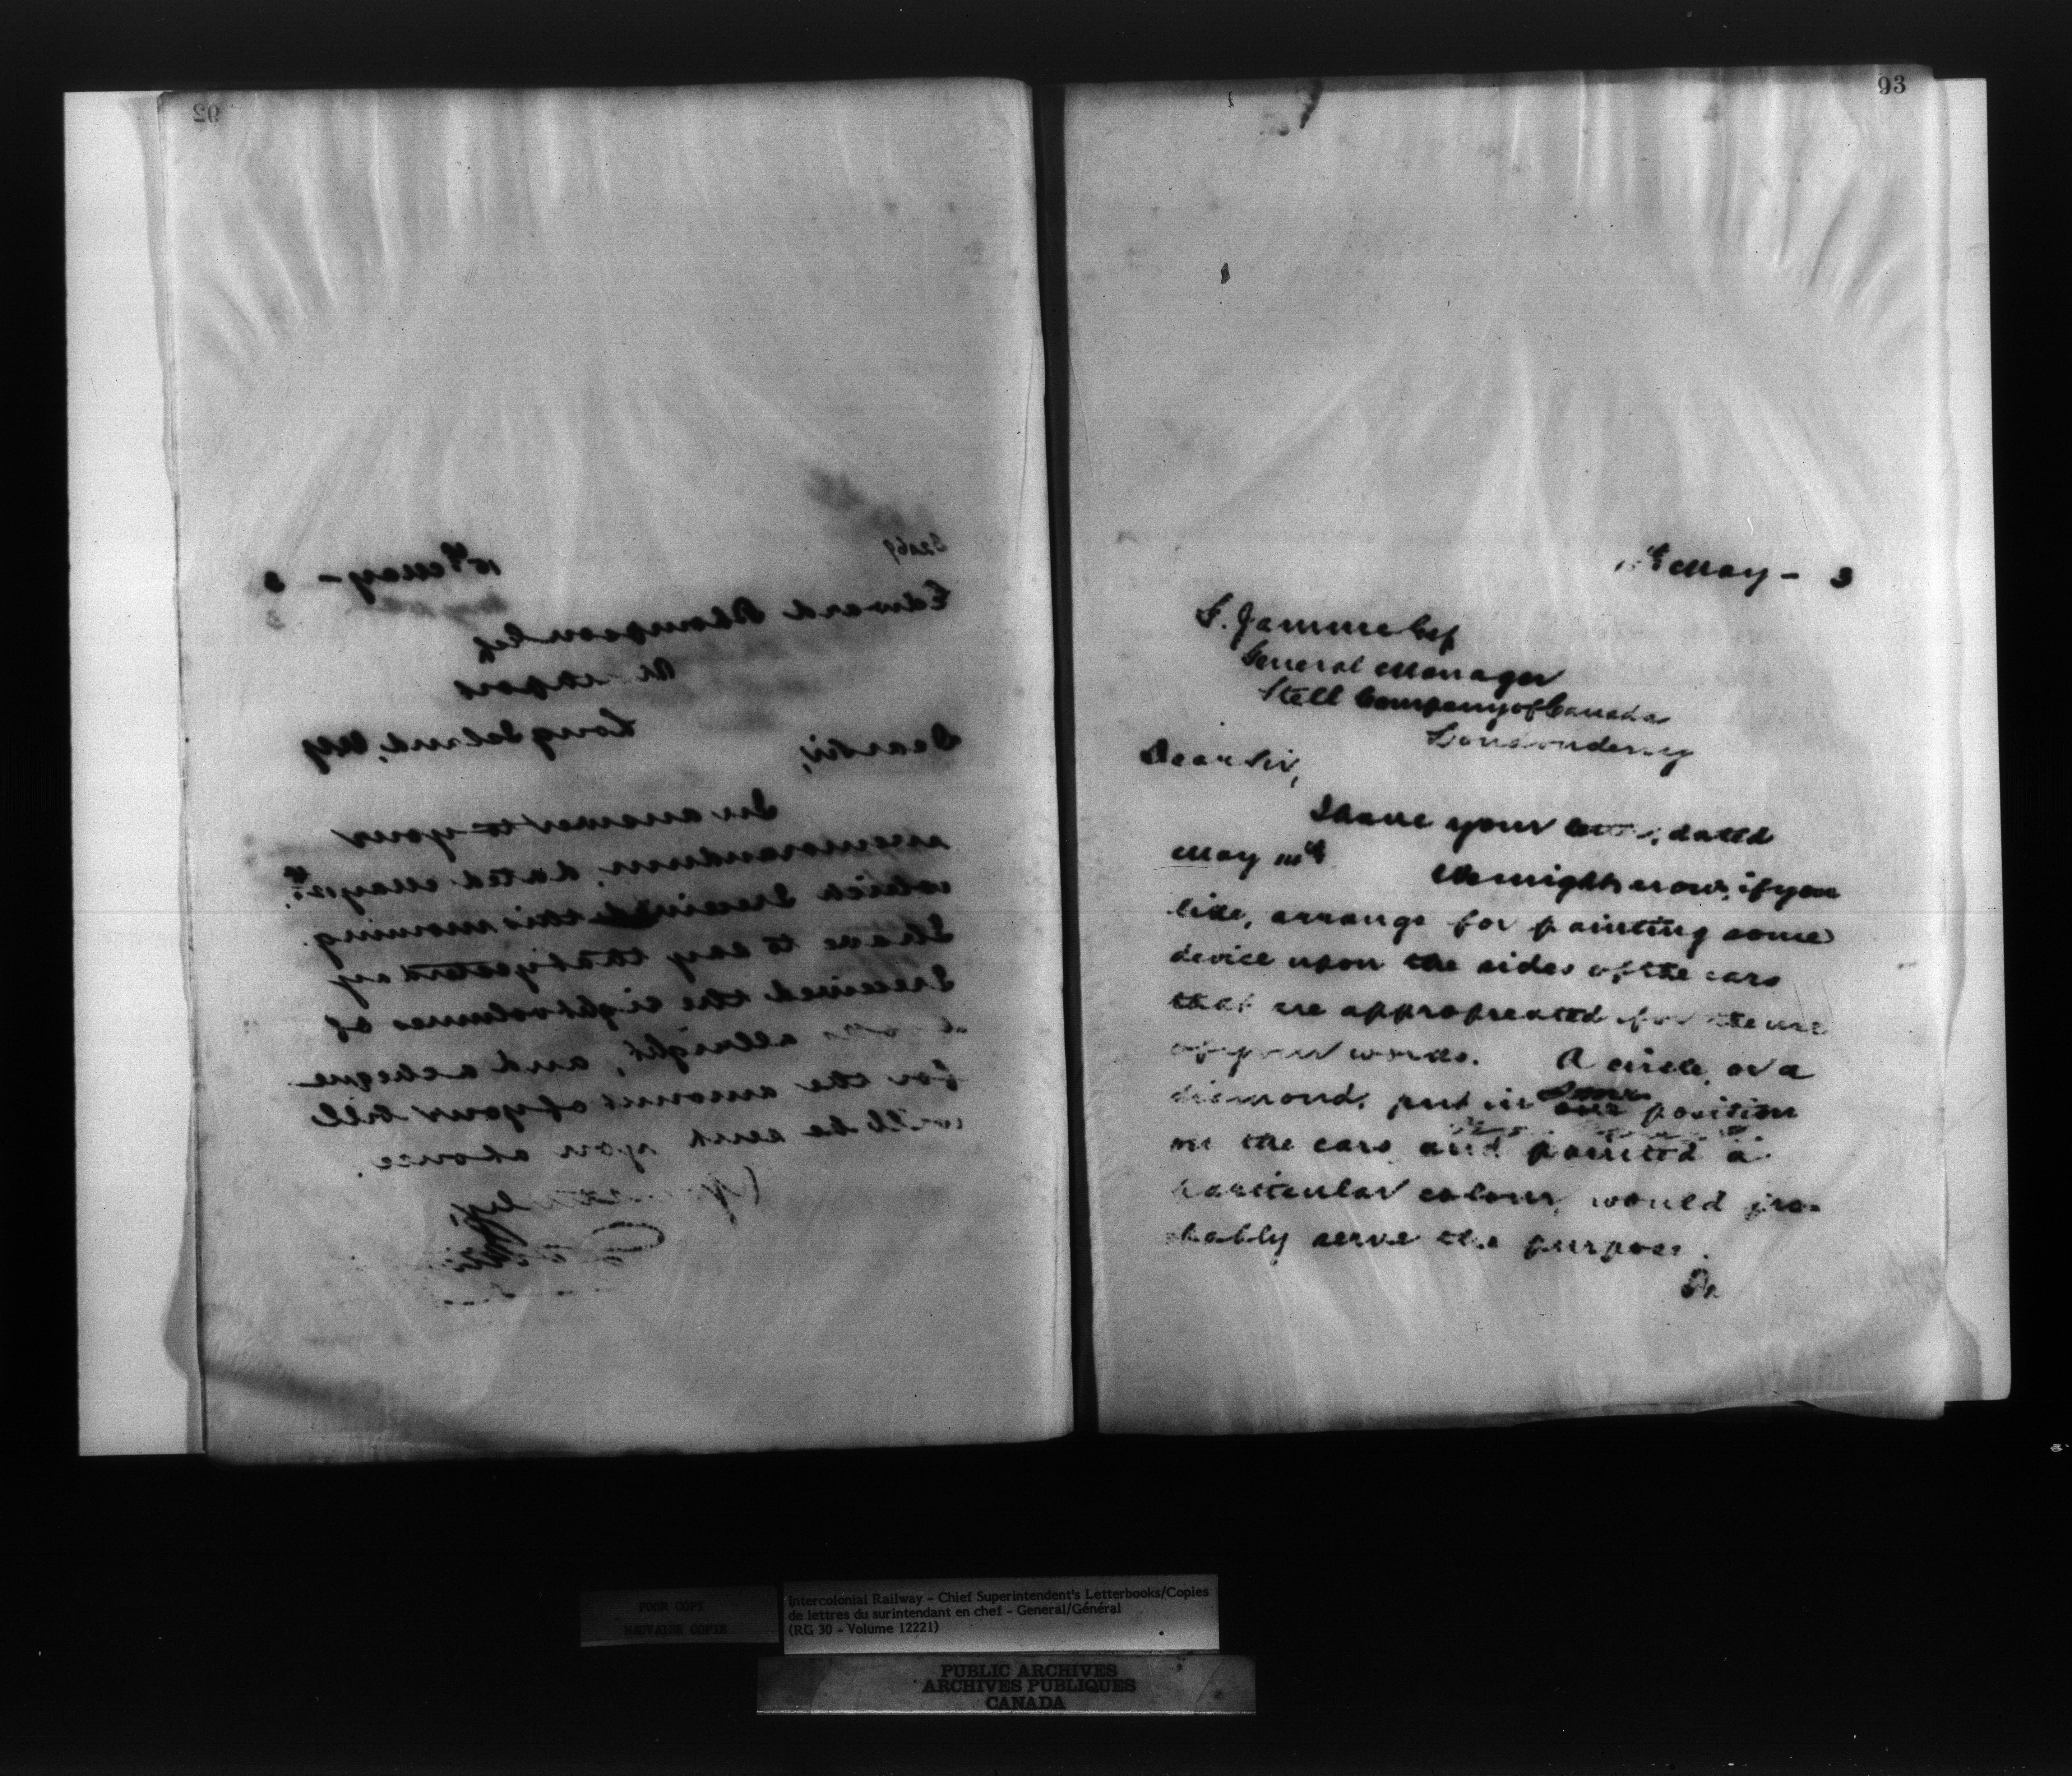 92
32069
15th May - 3
Edward Thompson Esq
Long Island, NY
Dear Sir,
In answer to your
memorandum, dated May 12th,
which I received this morning.
I have to say that yesterday
I received the eight volumes of
allright, and a cheque
for the amount of your bill
will be sent you at once.
93
May - 3
F. Jamme Esq
General Manager
Steel Company of Canada
Londonderry
Dear Sir,
I have your letter, dated
May 11th We might now, if you
like, arrange for painting some
device upon the sides of the cars
that are appropreated for the use
of your works. A circle, or a
diamond, put in some position
on the cars and painted a
particular colour, would pro-
bably serve the purpose.
POOR COPY
MAUVAISE COPIE
Intercolonial Railway - Chief Superintendent's Letterbooks/Copies
de lettres du surintendant en chef - General/Général
(RG 30 - Volume 12221)
PUBLIC ARCHIVES
ARCHIVES PUBLIQUES
CANADA